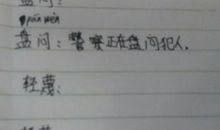 盘问:
pán wèn
盘问:警察正在盘问犯人.
轻蔑: